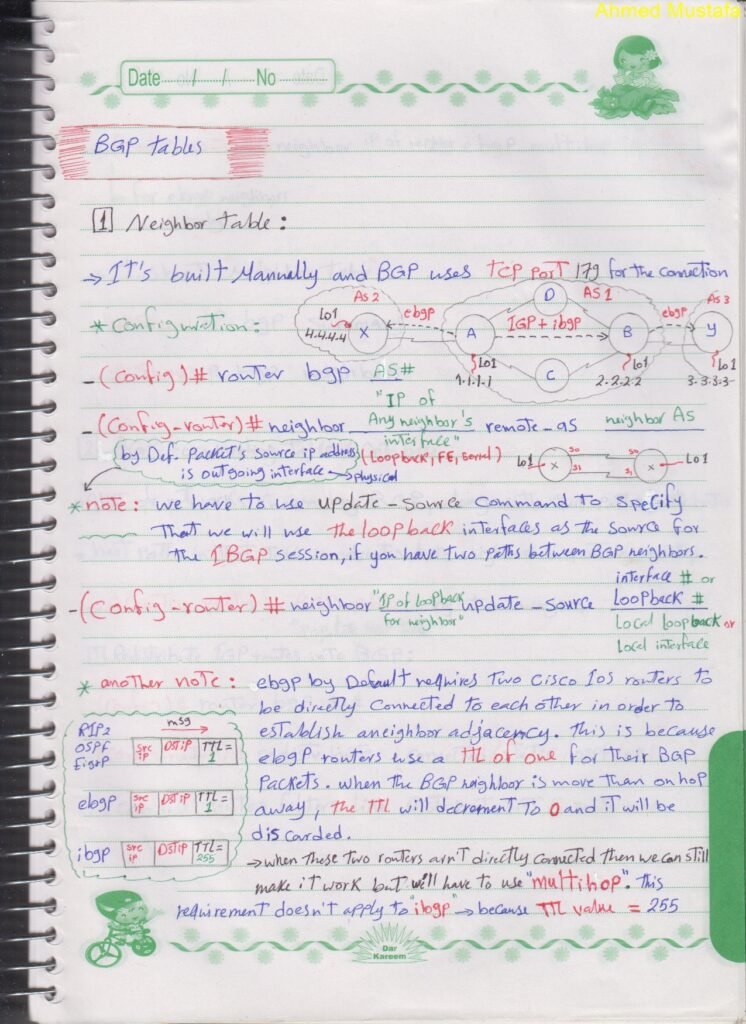 Ahmed Mustafa
Date ....../....../...... No ............
BGP tables
1 Neighbor table:
→ It's built Manually and BGP uses TCP port 179 for the connection
AS 2 ebgp D AS 1 ebgp AS 3
* Configuration: Lo1 4.4.4.4 X A IGP + ibgp B Y
Lo1 1.1.1.1 C Lo1 2.2.2.2 Lo1 3.3.3.3
- (Config)# router bgp AS#
"IP of
- (Config-router)# neighbor Any neighbor's remote-as neighbor AS
interface"
(Loopback, FE, Serial)
by Def. packet's source ip address
is outgoing interface → physical
Lo1 x S0 S0 x Lo1
S1 S1
* note: we have to use update-source command to specify
that we will use the loopback interfaces as the source for
the IBGP session, if you have two paths between BGP neighbors.
interface # or
- (Config-router)# neighbor "IP of loopback update-source Loopback #
for neighbor" Local loopback or
Local interface
* another note: ebgp by Default requires two Cisco Ios routers to
be directly connected to each other in order to
establish aneighbor adjacency. this is because
ebgp routers use a TTL of one for their BGP
packets. when the BGP neighbor is more than on hop
away, the TTL will decrement to 0 and it will be
discarded.
msg
RIP2
OSPF
EigrP
src ip DST iP TTL= 1
ebgp src ip DST iP TTL= 1
ibgp src ip DST iP TTL= 255
→ when these two routers arn't directly connected then we can still
make it work but we'll have to use "multihop". this
requirement doesn't apply to "ibgp" → because TTL value = 255
Dar
Kareem